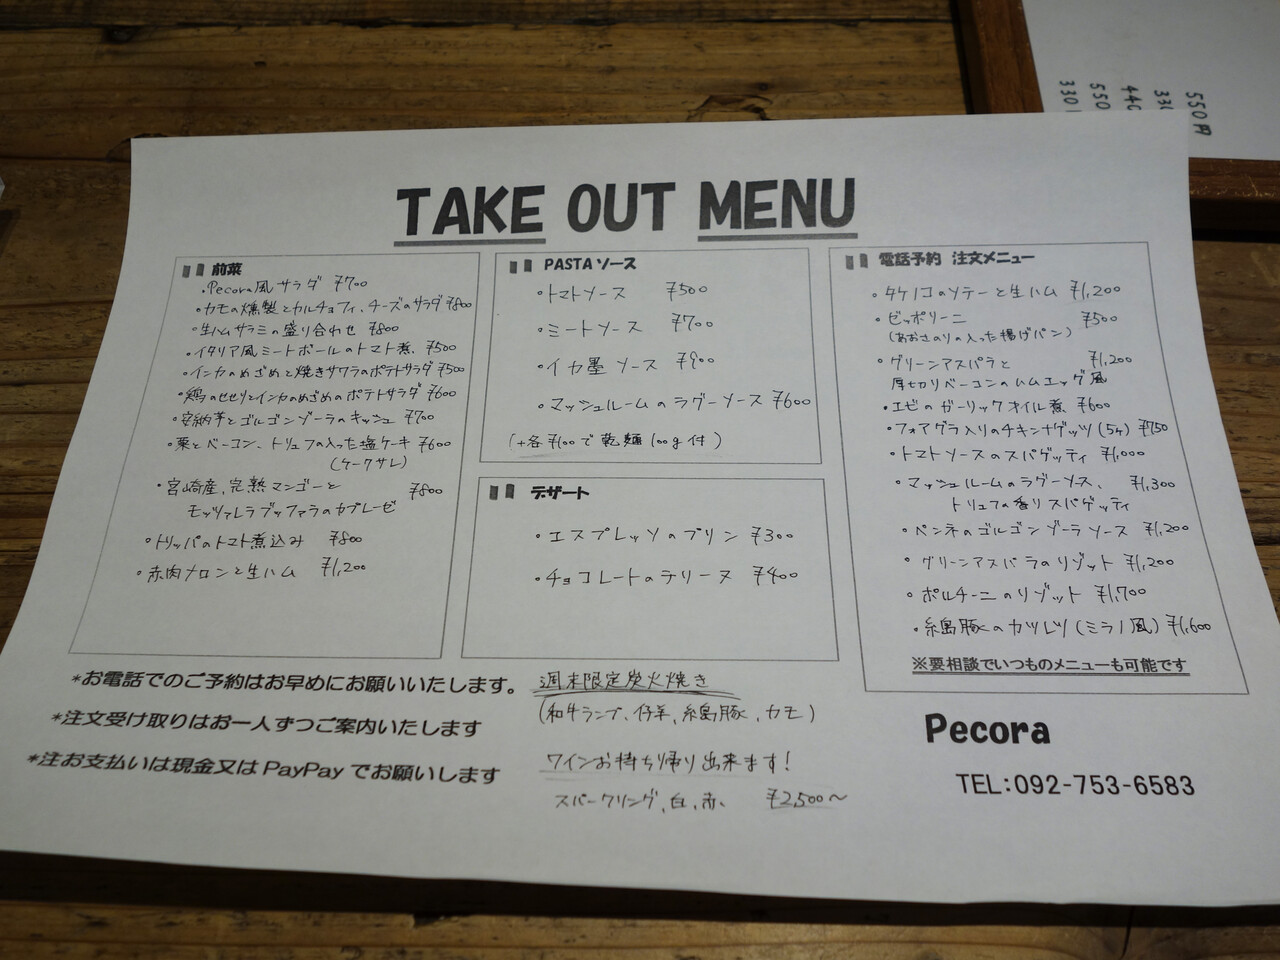 TAKE OUT MENU
前菜
・Pecora風サラダ ¥700
・カモの燻製とカルチョフィ、チーズのサラダ ¥800
・生ハムサラミの盛り合わせ ¥800
・イタリア風ミートボールのトマト煮 ¥500
・インカのめざめと焼きサワラのポテトサラダ ¥500
・鶏のせせりとインカのめざめのポテトサラダ ¥600
・安納芋とゴルゴンゾーラのキッシュ ¥700
・栗とベーコン、トリュフの入った塩ケーキ ¥600
(ケークサレ)
・宮崎産、完熟マンゴーと ¥800
モッツァレラブッファラのカプレーゼ
・トリッパのトマト煮込み ¥800
・赤肉メロンと生ハム ¥1,200
PASTAソース
・トマトソース ¥500
・ミートソース ¥700
・イカ墨ソース ¥900
・マッシュルームのラグーソース ¥600
(+各¥100で乾麺100g付)
デザート
・エスプレッソのプリン ¥300
・チョコレートのテリーヌ ¥400
電話予約 注文メニュー
・タケノコのソテーと生ハム ¥1,200
・ゼッポリーニ ¥500
(あおさのりの入った揚げパン)
・グリーンアスパラと ¥1,200
厚切りベーコンのハムエッグ風
・エビのガーリックオイル煮 ¥600
・フォアグラ入りのチキンナゲッツ(5ヶ) ¥750
・トマトソースのスパゲッティ ¥1,000
・マッシュルームのラグーソース、 ¥1,300
トリュフの香りスパゲッティ
・ペンネのゴルゴンゾーラソース ¥1,200
・グリーンアスパラのリゾット ¥1,200
・ポルチーニのリゾット ¥1,700
・糸島豚のカツレツ(ミラノ風) ¥1,600
※要相談でいつものメニューも可能です
*お電話でのご予約はお早めにお願いいたします。
*注文受け取りはお一人ずつご案内いたします
*注お支払いは現金又はPayPayでお願いします
週末限定炭火焼き
(和牛ランプ、仔羊、糸島豚、カモ)
ワインお持ち帰り出来ます!
スパークリング、白、赤、 ¥2,500〜
Pecora
TEL:092-753-6583
550円
330
440
550
330